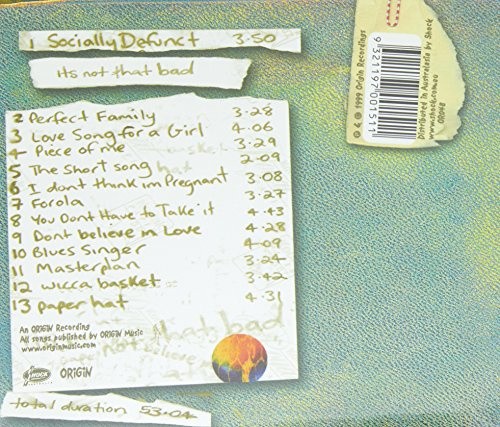 1 Socially Defunct 3·50
its not that bad
2 Perfect Family 3·28
3 Love Song for a Girl 4·06
4 Piece of me 3·29
5 The short song 2·09
6 I dont think im Pregnant 3·08
7 Forola 3·27
8 You Dont Have to Take it 4·43
9 Dont believe in Love 4·28
10 Blues Singer 4·09
11 Masterplan 3·24
12 wicca basket 3·42
13 paper hat 4·31
An ORiGiN Recording
All songs published by ORiGiN Music
www.originmusic.com
SHOCK
ORiGiN
total duration 53·04
℗ © 1999 Origin Recordings
9 321197 001511
Distributed in Australasia by Shock
www.shock.com.au
OR048
that bad